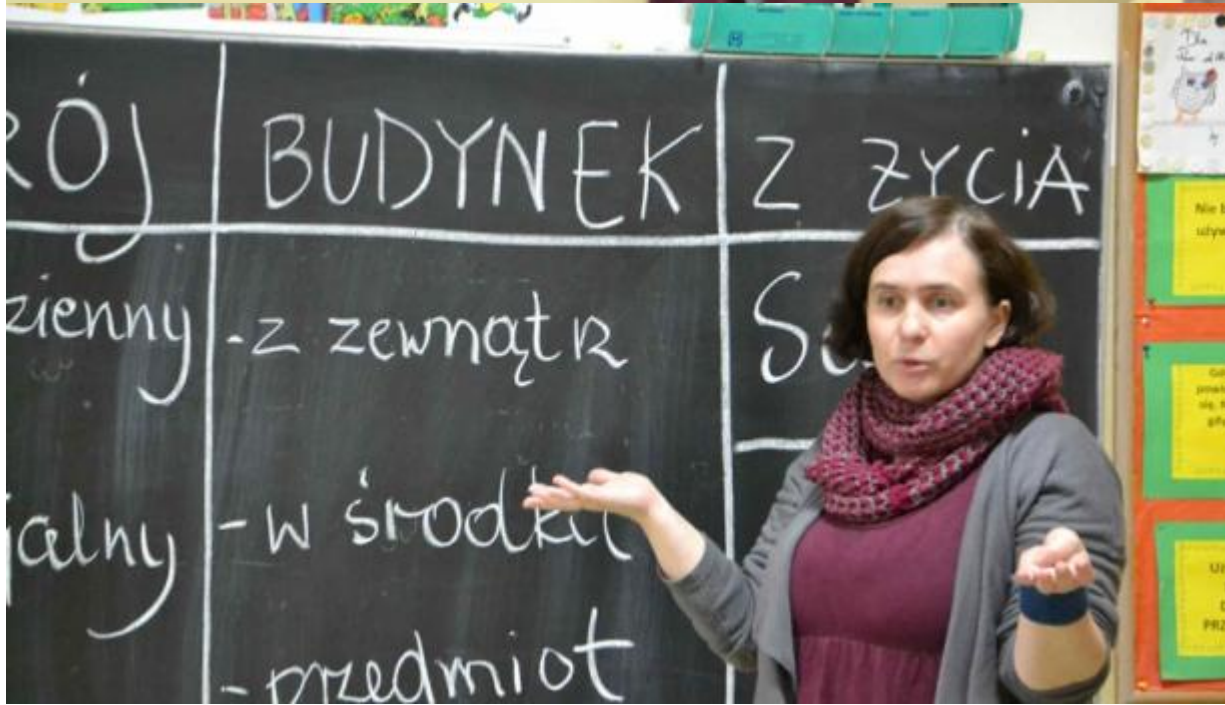 RÓJ BUDYNEK Z ZYCiA
zienny -z zewnątrz
jalny -w środku
-przedmiot
Dla
Nie
PRZ